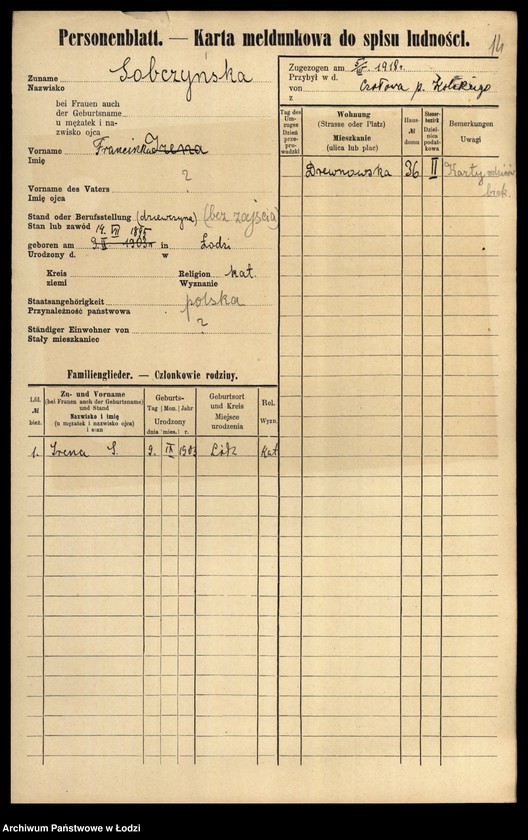 Personenblatt. — Karta meldunkowa do spisu ludności.
14
Zuname Sobczyńska
Nazwisko
bei Frauen auch
der Geburtsname
u mężatek i na-
zwisko ojca
Vorname Franciszka Irena
Imię
?
Vorname des Vaters
Imię ojca
Stand oder Berufsstellung (dziewczyna) (bez zajęcia)
Stan lub zawód 14. VII 1875
geboren am 9. IX 1903 r in Łodzi
Urodzony d. w
Kreis
ziemi
Religion kat.
Wyznanie
Staatsangehörigkeit polska
Przynależność państwowa
?
Ständiger Einwohner von
Stały mieszkaniec
Familienglieder. — Członkowie rodziny.
Lfd. № bież.
Zu- und Vorname
(bei Frauen auch der Geburtsname)
und Stand
Nazwisko i imię
(u mężatek i nazwisko ojca)
i stan
Geburts-
Tag | Mon. | Jahr
Urodzony
dnia | mies. | r.
Geburtsort
und Kreis
Miejsce
urodzenia
Rel.
Wyzn.
1. Irena S. 9. IX 1903 Łódź Kat
Zugezogen am 1918 r.
Przybył w d.
von
z
Tag des Um-
zuges
Dzień
prze-
prowadzki
Wohnung
(Strasse oder Platz)
Mieszkanie
(ulica lub plac)
Haus-
№
domu
Steuer-
bezirk
Dziel-
nica
podat-
kowa
Bemerkungen
Uwagi
Drewnowska 36 II Karty
brak.
Archiwum Państwowe w Łodzi